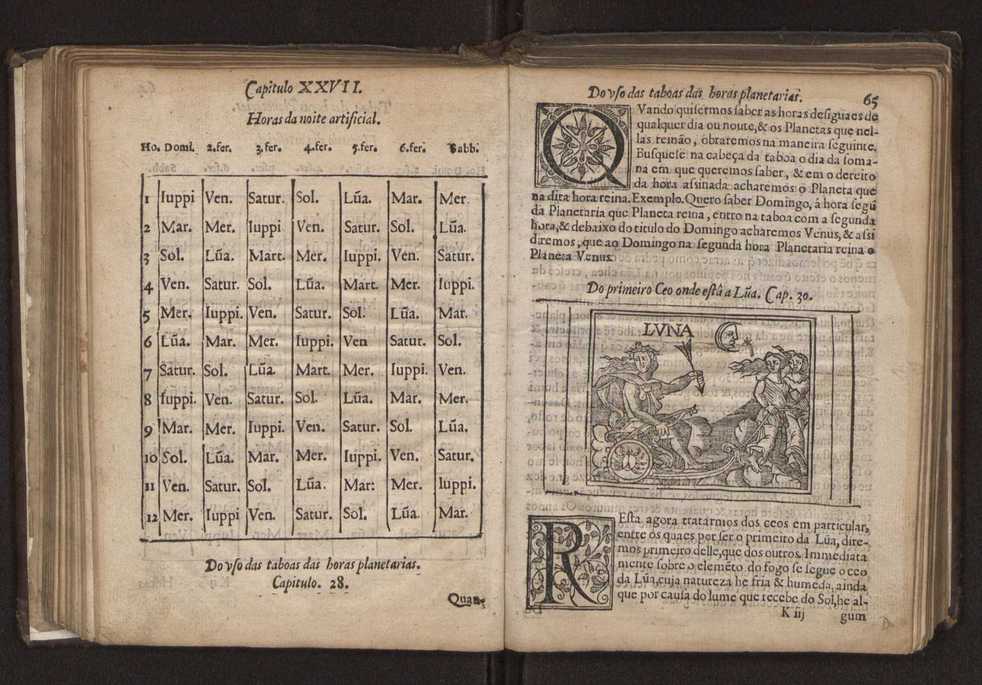 Capitulo XXVII.
Horas da noite artificial.
Ho. Domi. 2.fer. 3.fer. 4.fer. 5.fer. 6.fer. Sabb.
1 Iuppi Ven. Satur. Sol. Lũa. Mar. Mer.
2 Mar. Mer. Iuppi Ven. Satur. Sol. Lũa.
3 Sol. Lũa. Mart. Mer. Iuppi. Ven. Satur.
4 Ven. Satur. Sol. Lũa. Mart. Mer. Iuppi.
5 Mer. Iuppi. Ven. Satur. Sol. Lũa. Mar.
6 Lũa. Mar. Mer. Iuppi. Ven Satur. Sol.
7 Satur. Sol. Lũa. Mart. Mer. Iuppi. Ven.
8 Iuppi. Ven. Satur. Sol. Lũa. Mar. Mer.
9 Mar. Mer. Iuppi. Ven. Satur. Sol. Lũa.
10 Sol. Lũa. Mar. Mer. Iuppi. Ven. Satur.
11 Ven. Satur. Sol. Lũa. Mar: Mer. Iuppi.
12 Mer. Iuppi Ven. Satur. Sol. Lũa. Mar.
Do vſo das taboas das horas planetarias.
Capitulo. 28.
Quan-
Do vſo das taboas das horas planetarias. 65
QVando quiſermos ſaber as horas deſiguaes de
qualquer dia ou noute,& os Planetas que nel-
las reinão, obraremos na maneira ſeguinte.
Buſqueſe na cabeça da taboa o dia da ſoma-
na em que queremos ſaber, & em o dereito
da hora aſsinada acharemos o Planeta que
na dita hora reina. Exemplo. Quero ſaber Domingo, á hora ſegũ
da Planetaria que Planeta reina, entro na taboa com a ſegunda
hora,& debaixo do titulo do Domingo acharemos Venus,& aſsi
diremos, que ao Domingo na ſegunda hora Planetaria reina o
Planeta Venus.
Do primeiro Ceo onde eſtâ a Lũa. Cap. 30.
LVNA
REſta agora tratarmos dos ceos em particular,
entre os quaes por ſer o primeiro da Lũa, dire-
mos primeiro delle,que dos outros. Immediata
mente ſobre o elemẽto do fogo ſe ſegue o ceo
da Lũa,cuja natureza he fria & humeda, ainda
que por cauſa do lume que recebe do Sol,he al-
K iij gum